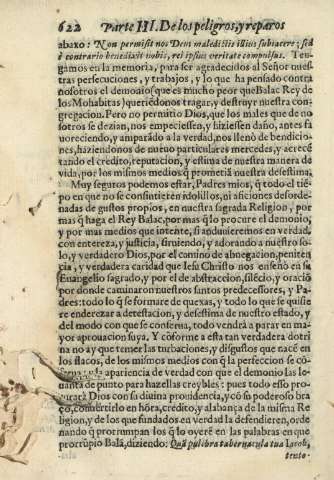 622 Parte III. De los peligros, y reparos
abaxo: Non permisit nos Deus maledictis illius subiacere; sed
è contrario benedixit nobis, rei ipsius veritate compulsus. Ten-
gamos en la memoria, para ser agradecidos al Señor nuest
tras persecuciones, y trabajos, y lo que ha pensado contra
nosotros el demonio (que es mucho peor que Balac Rey de
los Mohabitas) queriédonos tragar, y destruyr nuestra con-
gregacion. Pero no permitio Dios, que los males que de no-
sotros se dezian, nos empeciessen, y hiziessen daño, antes fa
uoreciendo, y amparãdo a la verdad, nos llenò de bendicio-
nes, haziendonos de nueuo particulares mercedes, y acrecẽ
tando el credito, reputacion, y estima de nuestra manera de
vida, por los mismos medios q̃ prometiã nuestra desestima.
Muy seguros podemos estar, Padres mios, q̃ todo el tiẽ-
po en que no se consintieren idolillos, ni aficiones desorde-
nadas de gustos propios, en nuestra sagrada Religion, por
mas q̃ haga el Rey Balac, por mas q̃ lo procure el demonio,
y por mas medios que intente, si anduuieremos en verdad,
con entereza, y justicia, siruiendo, y adorando a nuestro so-
lo, y verdadero Dios, por el camino de abnegacion, peniten
cia, y verdadera caridad que Iesu Christo nos enseñò en su
Euangelio sagrado, y por el de abstraccion, silẽcio, y oraciõ
por donde caminaron nuestros santos predecessores, y Pa-
dres: todo lo q̃ se formare de quexas, y todo lo que se quisie
re enderezar a detestacion, y desestima de nuestro estado, y
del modo con que se conserua, todo vendrà a parar en ma-
yor aprouacion suya. Y cõforme a esta tan verdadera dotri
na no ay que temer las turbaciones, y disgustos que nacẽ en
los flacos, de los mismos medios con q̃ la perfeccion se cõ-
y la apariencia de verdad con que el demonio las le-
uanta de punto para hazellas creybles: pues todo esso pro-
curarà Dios con su diuina prouidencia, y cõ su poderoso bra
ço, conuertirlo en hõra, credito, y alabança de la misma Re
ligion, y de los que fundados en verdad la defendieren, or de-
nando q̃ prorrumpan los q̃ lo oyerẽ en las palabras en que
prorrũpio Balã, diziendo: Quã pulchra tabernacula tua Iacob,
tento-